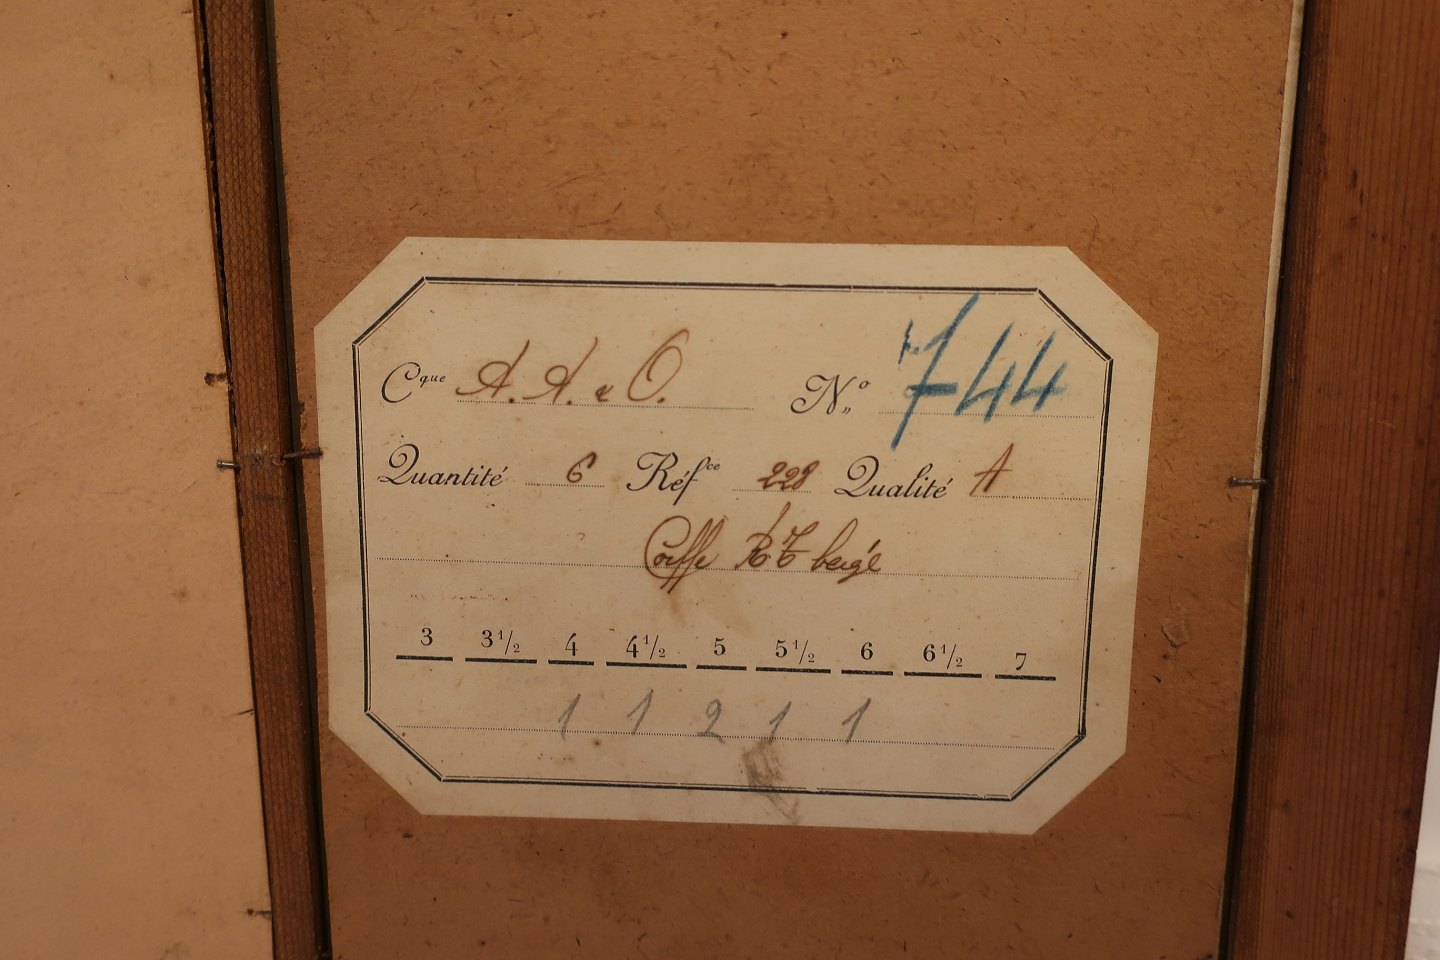 Cque A. A. & O. N.º 744
Quantité 6 Réfce 228 Qualité A
Coiffe
3 3 1/2 4 4 1/2 5 5 1/2 6 6 1/2 7
1 1 2 1 1